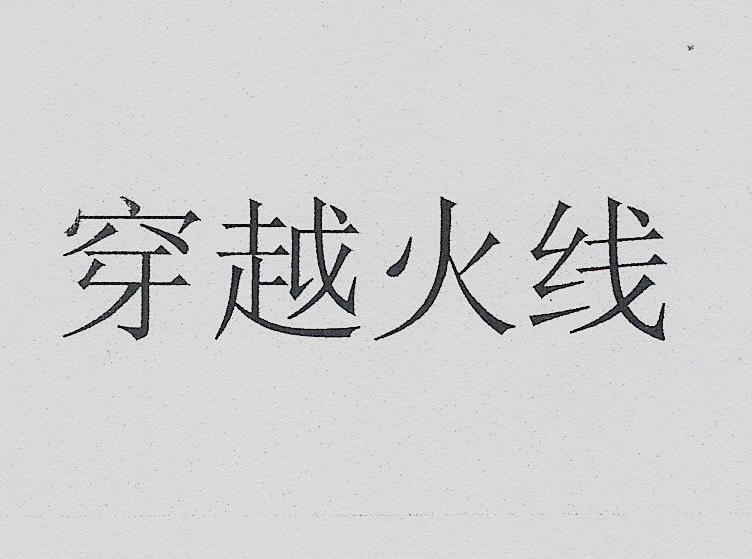 穿越火线